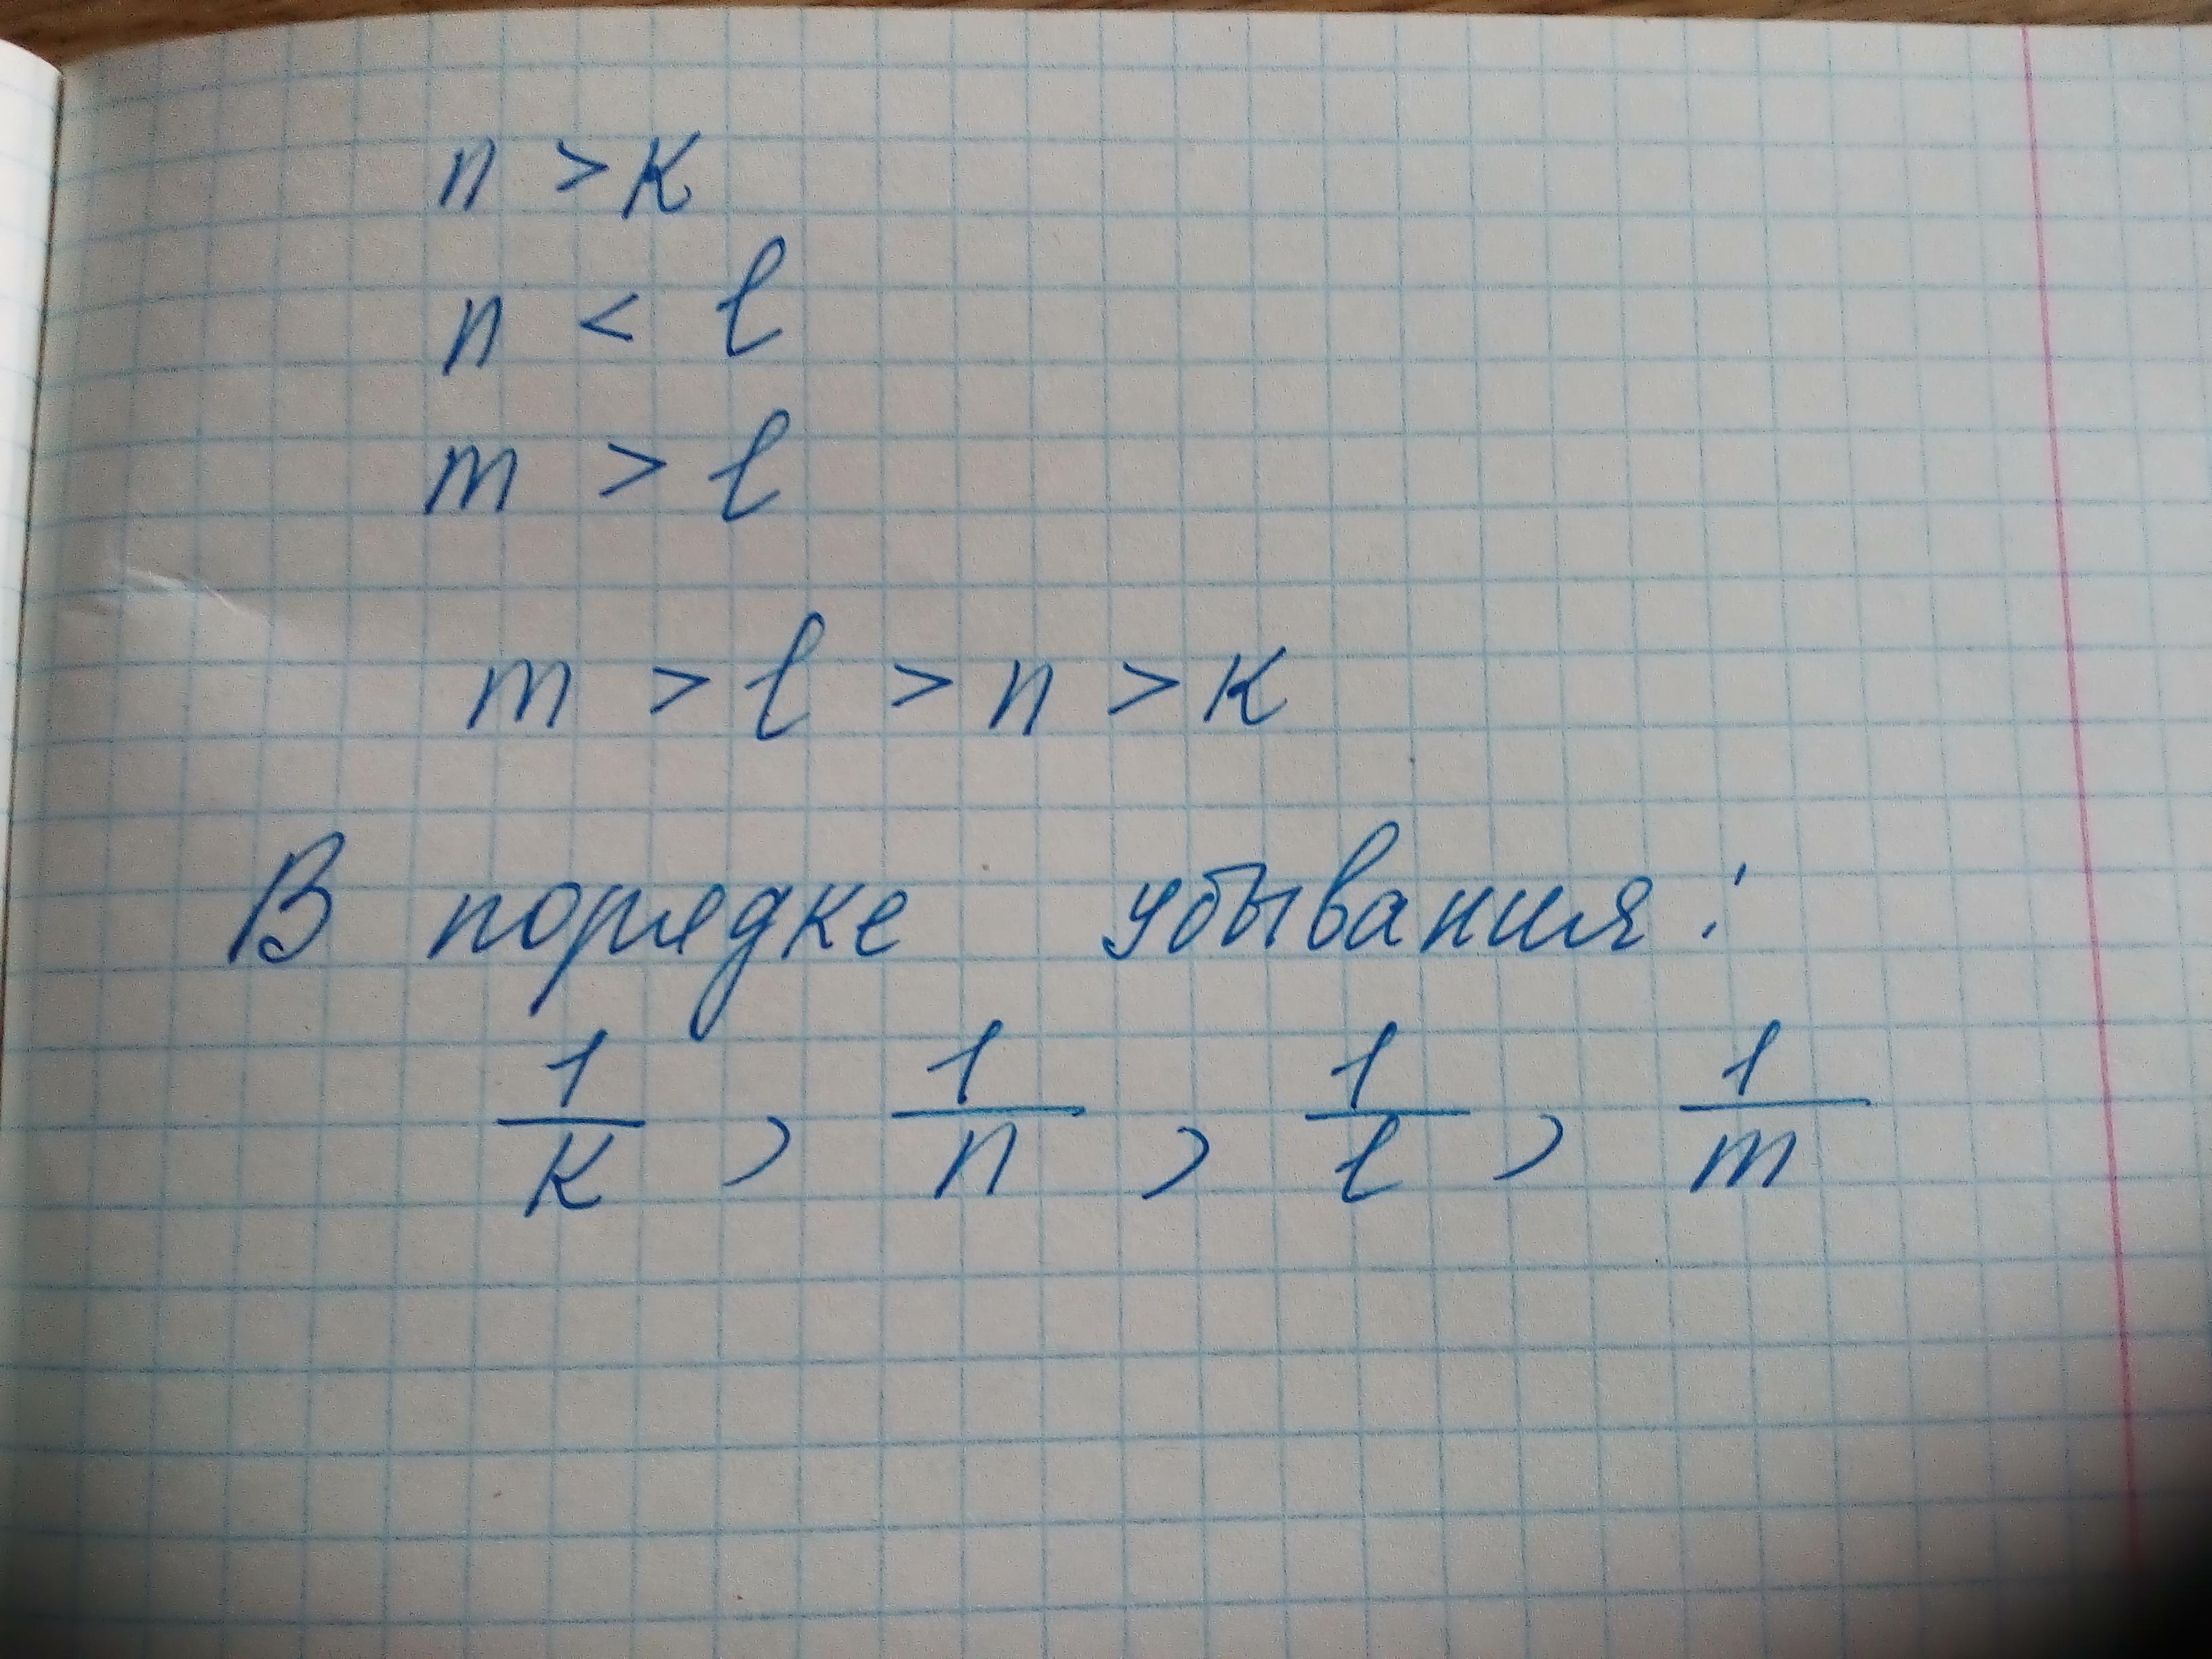 n > k
n < l
m > l
m > l > n > k
В порядке убывания:
1/k , 1/n , 1/l , 1/m